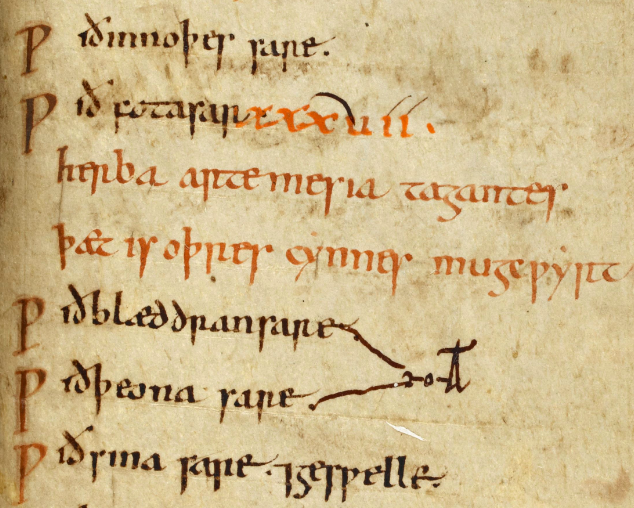 Ƿið innoþes sare.
Ƿið fota sar xxxvii.
herba artemesia tagantes
þæt is oþres cynnes mugcƿyrt
Ƿið blæddran sare
Ƿið þeona sare.
Ƿið sina sare ⁊ gesƿelle.